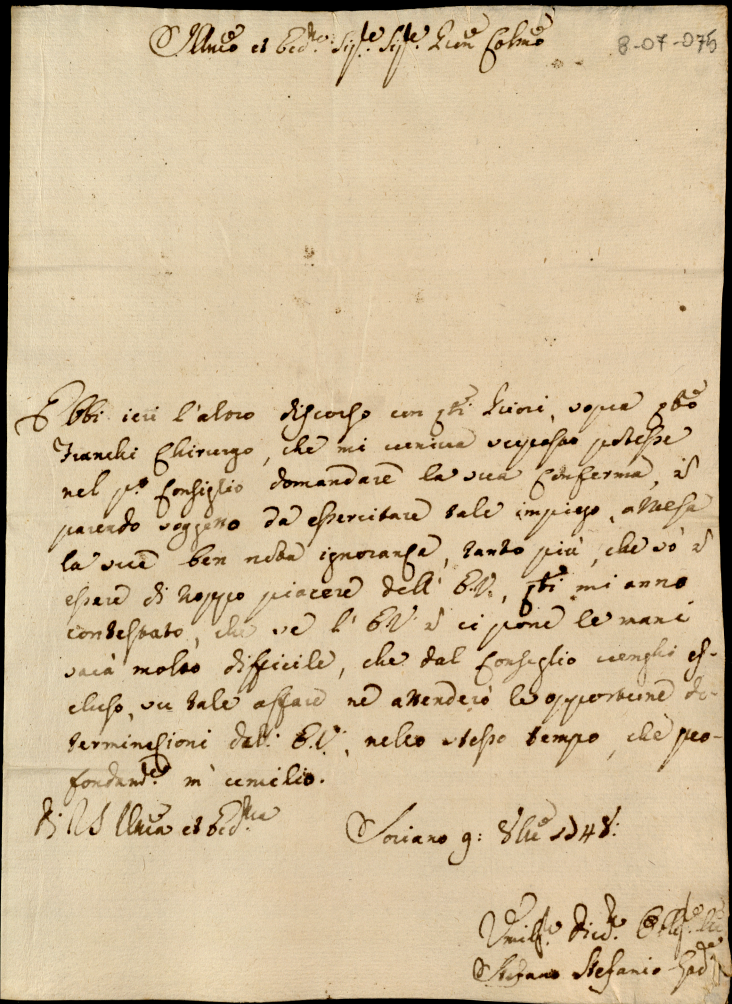 Illmo et Ecc.mo Sig.re Sig.re Pron Colmo
8-07-075
Ebbi ieri l'altro discorso con q.ti Priori, sopra q.to
Franchi Chirurgo, che mi veniva supposto potesse
nel p.o Consiglio domandare la sua Conferma, n
parendo soggetto da essercitare tale impiego, attesa
la sua ben nota ignoranza, tanto più, che sò n
essere di troppo piacere dell' E.V., q.ti mi anno
contestato, che se l' E.V. n ci pone le mani
sarà molto difficile, che dal Consiglio venghi es-
cluso, su tale affare ne attenderò le opportune de-
terminazioni dall' E.V., nello stesso tempo, che pro-
fondam.te m' umilio.
Di V.S. Illma et Ecc.ma
Soriano 9: 8bre 1748:
Umiliss.mo Dev.mo Obblig.mo
Stefano Stefanio